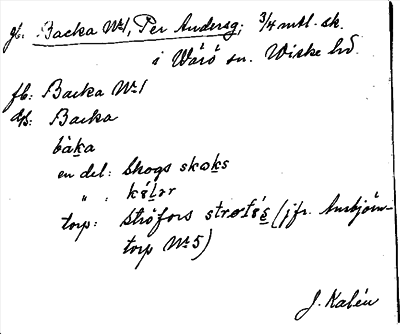 gb: Backa № 1, Per Andersg; 3/4 mtl. sk.
i Värö sn. Viske hd.
fb: Backa № 1
ds: Backa
bàka
en del: Skogs skoks
" " :
torp: Ströfors (jfr. Ambjörn-
torp № 5)
J. Kalén